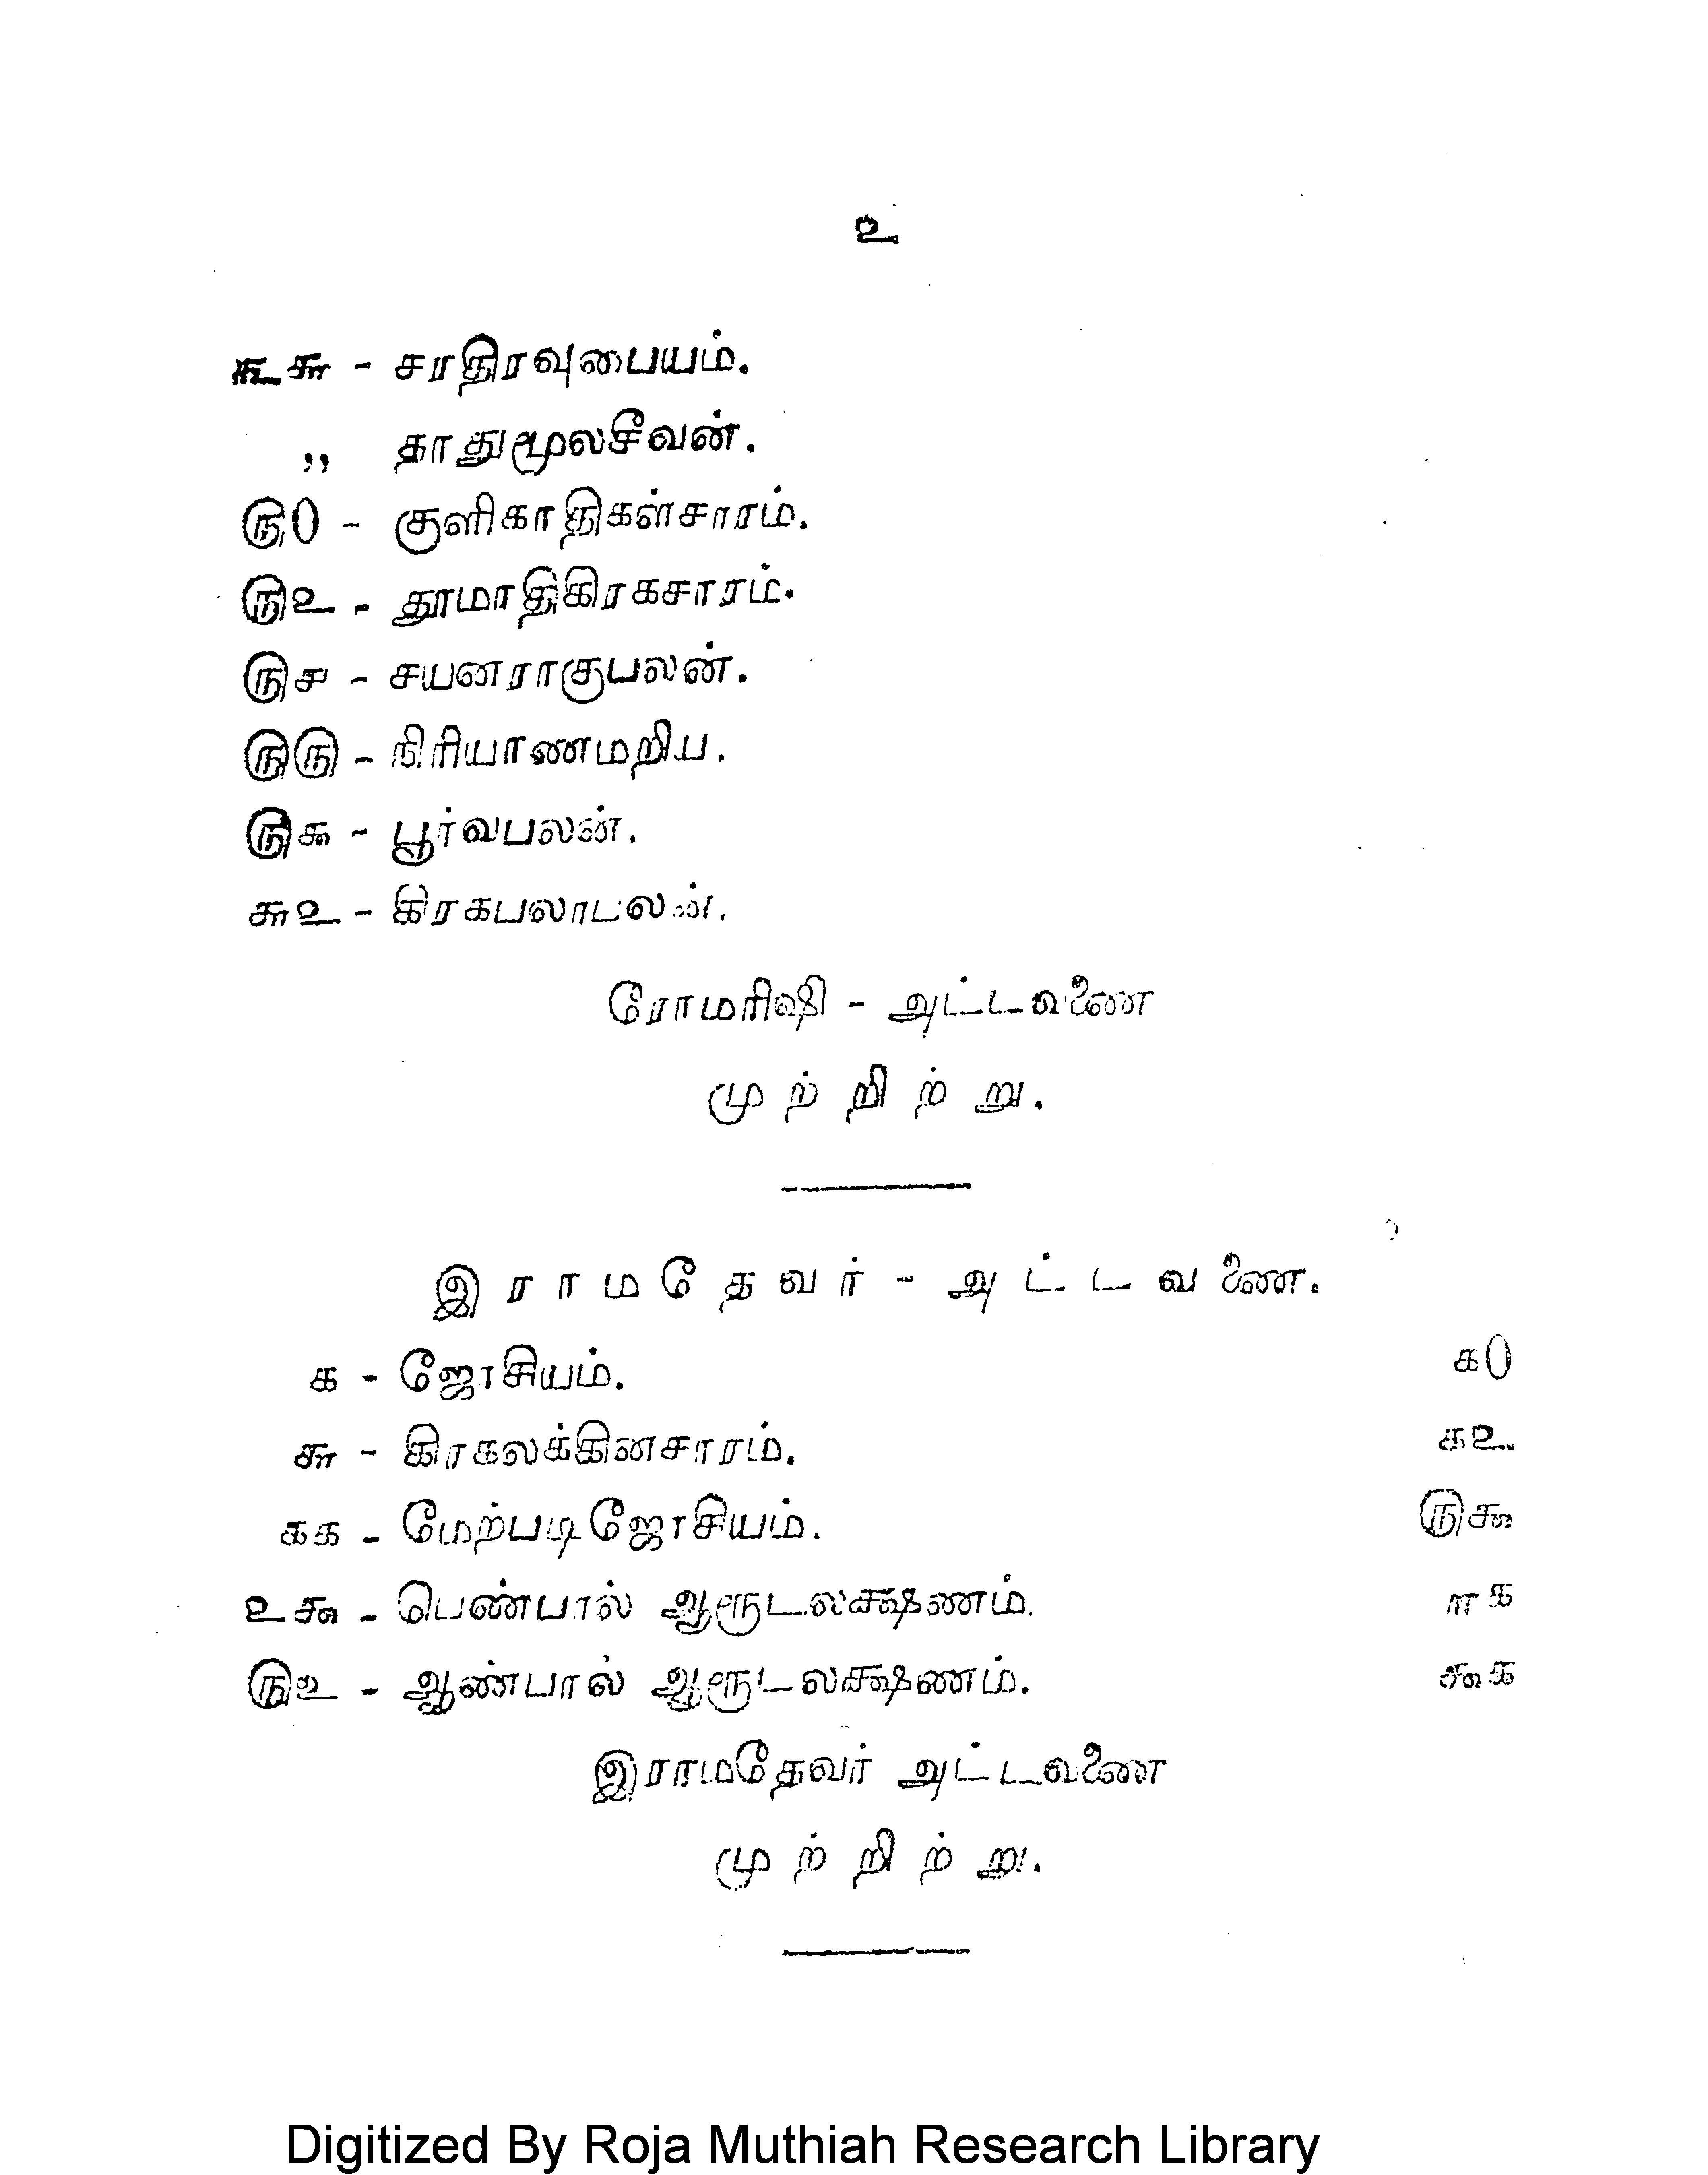 ௨
௪௮ - சரதிரவுபையம்.
,, தாதுமூலசீவன்.
௫0 - குளிகாதிகள்சாரம்.
௫௨ - தூமாதிகிரகசாரம்.
௫௪ - சயனராகுபலன்.
௫௫ - நிரியாணமறிய.
௫௯ - பூர்வபலன்.
௬௨ - கிரகபலாபலன்.
ரோமரிஷி - அட்டவணை
முற்றிற்று.
இராமதேவர் - அட்டவணை.
௧ - ஜோசியம். ௧0
௬ - கிரகலக்கினசாரம். ௧௨
௧௧ - மேற்படிஜோசியம். ௫௯
௨௯ - பெண்பால் ஆரூடலக்ஷணம். ௭௧
௫௨ - ஆண்பால் ஆரூடலக்ஷணம். ௯௧
இராமதேவர் அட்டவணை
முற்றிற்று.
Digitized By Roja Muthiah Research Library